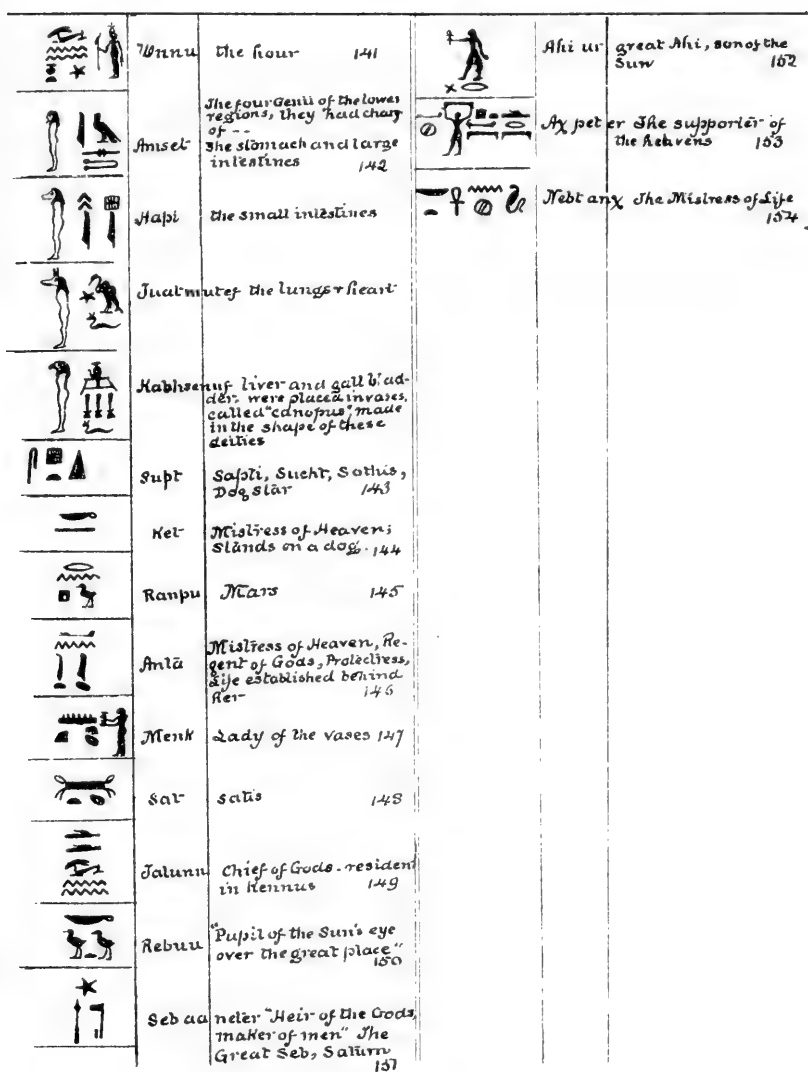 Unnu the hour 141
The four Genii of the lower
regions, they had charg
of --
Amset the stomach and large
intestines
142
Hapi the small intestines
Tuatmutef the lungs & heart
Kabhsenuf liver and gall blad-
der, were placed in vases,
called "canopus", made
in the shape of these
deities
Supt Sapti, Sucht, Sothis,
Dog star 143
Ket Mistress of Heaven;
stands on a dog. 144
Ranpu Mars 145
Mistress of Heaven, Re-
Anta gent of Gods, Protectress,
Life established behind
her 146
Menk Lady of the vases 147
Sat Satis 148
Tatunu Chief of Gods - resident
in Kennus 149
Rebuu "Pupil of the Sun's eye
over the great place"
150
Seb aa neter "Heir of the Gods,
maker of men" The
Great Seb, Saturn
151
Ahi ur great Ahi, son of the
Sun 152
Ax pet er The supporter of
the heavens 153
Nebt anx The Mistress of Life
154